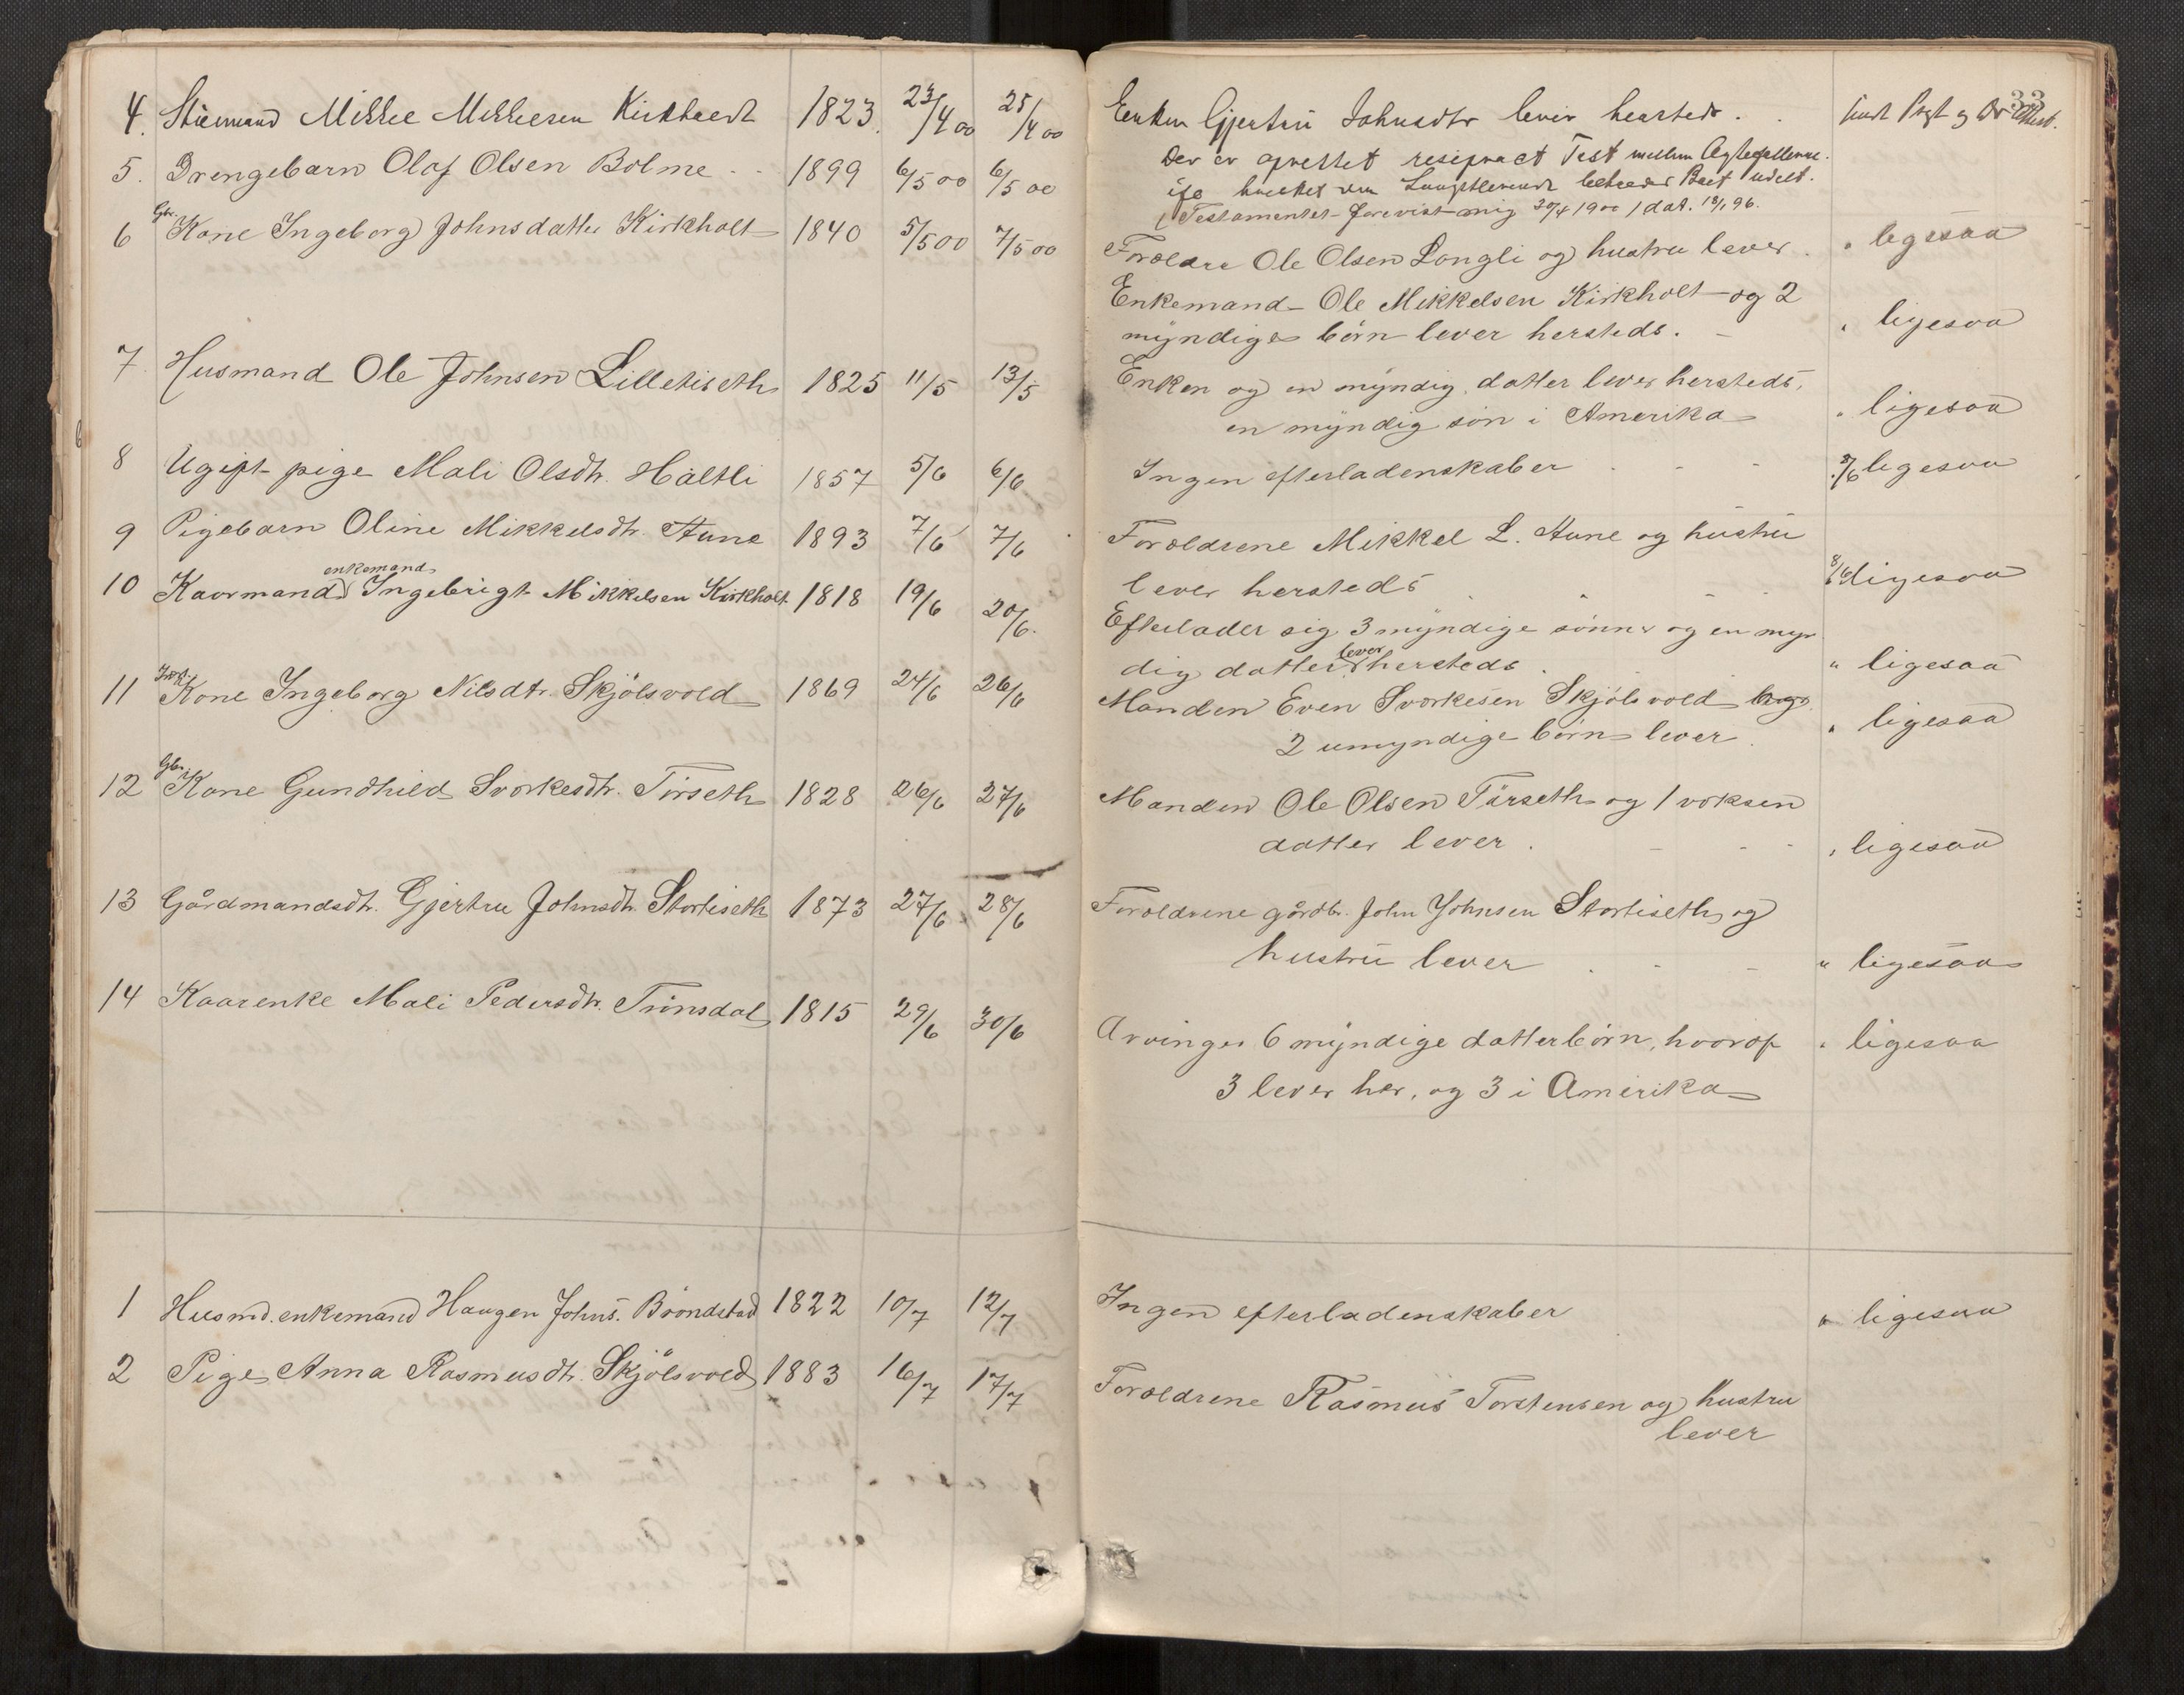 33
4. Mikkel Mikkelsen Kirkholt 1823. 23/4 00 25/4 00
5. Drengebarn Olaf Olsen Bolme 1899 6/5 00 6/5 00
Gbr.
6 Kone Ingeborg Johnsdatter Kirkholt 1840 5/5 00 7/5 00
7. Husmand Ole Johnsen Lilletiseth 1825 11/5 13/5
8 Ugift pige Mali Olsdtr. Håltli 1857 5/6 6/6
9 Pigebarn Oline Mikkelsdtr. Aune 1893 7/6 7/6
enkemand
10 Kaarmand Ingebrigt Mikkelsen Kirkholt 1818 19/6 20/6.
11 Kone Ingeborg Nilsdtr. Skjölsvold 1869 24/6 26/6
Gbr.
12 Kone Gundhild Svorkesdtr. Törseth 1828 26/6 27/6
13 Gårdmandsdtr. Gjertru Johnsdtr. Stortiseth 1873 27/6 28/6
14 Kaarenke Mali Pedersdtr. Trönsdal 1815 29/6 30/6
1 Husmd. enkemand Haagen Johns. Bröndstad 1822 10/7 12/7
2 Pige Anna Rasmusdtr. Skjölsvold 1883 16/7 17/7
Enken Gjertru Johnsdtr lever hersteds.
Der er oprettet resiproct Test mellem Ægtefellerne.
Længstlevende Boet udelt.
Testamentet forevist mig 30/4 1900 / dat. 18/1 96.
Foreldre Ole Olsen Longli og hustru lever. " ligesaa
Enkemand Ole Mikkelsen Kirkholt og 2
myndige börn lever hersteds. " ligesaa
Enken og en myndig datter lever hersteds,
en myndig sön i Amerika " ligesaa
Ingen efterladenskaber 8/6 ligesaa
Foroldrene Mikkel L. Aune og hustru
lever hersteds 8/6 ligesaa
Efterlader sig 3 myndige sönner og en myn
lever
dig datter hersteds " ligesaa
Manden Even Svorkesen Skjölsvold og
2 umyndige börn lever. " ligesaa
Manden Ole Olsen Törseth og 1 voksen
datter lever. " ligesaa
Foroldrene gårdbr. John Johnsen Stortiseth og
hustru lever " ligesaa
Arvinger 6 myndige datterbörn, hvoraf " ligesaa
3 lever her, og 3 i Amerika
Ingen efterladenskaber " ligesaa
Foroldrene Rasmus Torstensen og hustru
lever